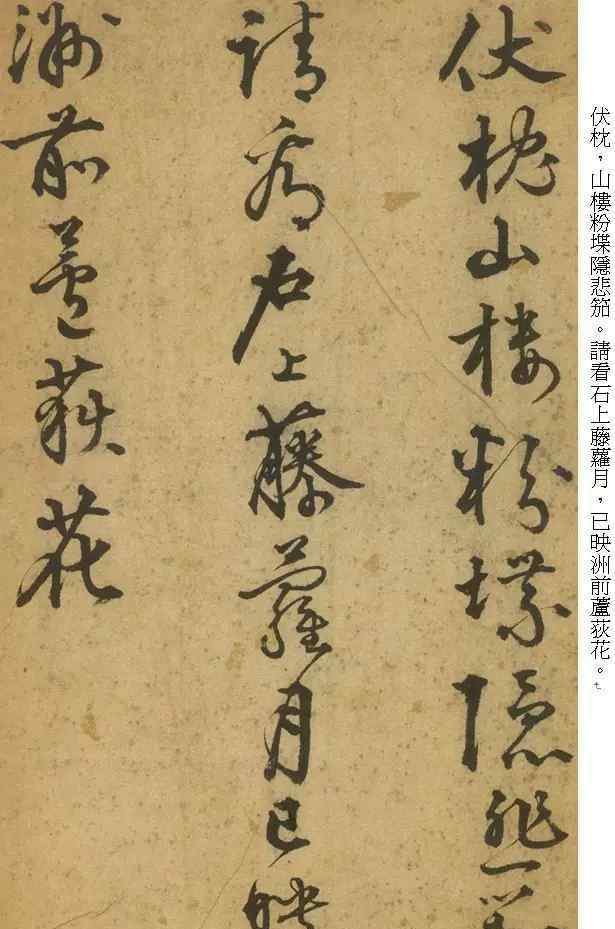 伏枕山樓粉堞隱悲
請看石上藤蘿月已映
洲前蘆荻花
伏枕，山樓粉堞隱悲笳。請看石上藤蘿月，已映洲前蘆荻花。